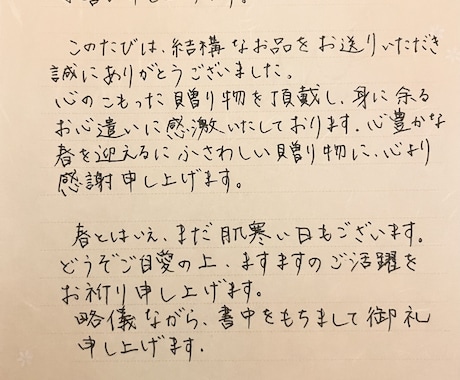 このたびは、結構なお品をお送りいただき
誠にありがとうございました。
心のこもった贈り物を頂戴し、身に余る
お心遣いに感激いたしております。心豊かな
春を迎えるにふさわしい贈り物に、心より
感謝申し上げます。
春とはいえ、まだ肌寒い日もございます。
どうぞご自愛の上、ますますのご活躍を
お祈り申し上げます。
略儀ながら、書中をもちまして御礼
申し上げます.